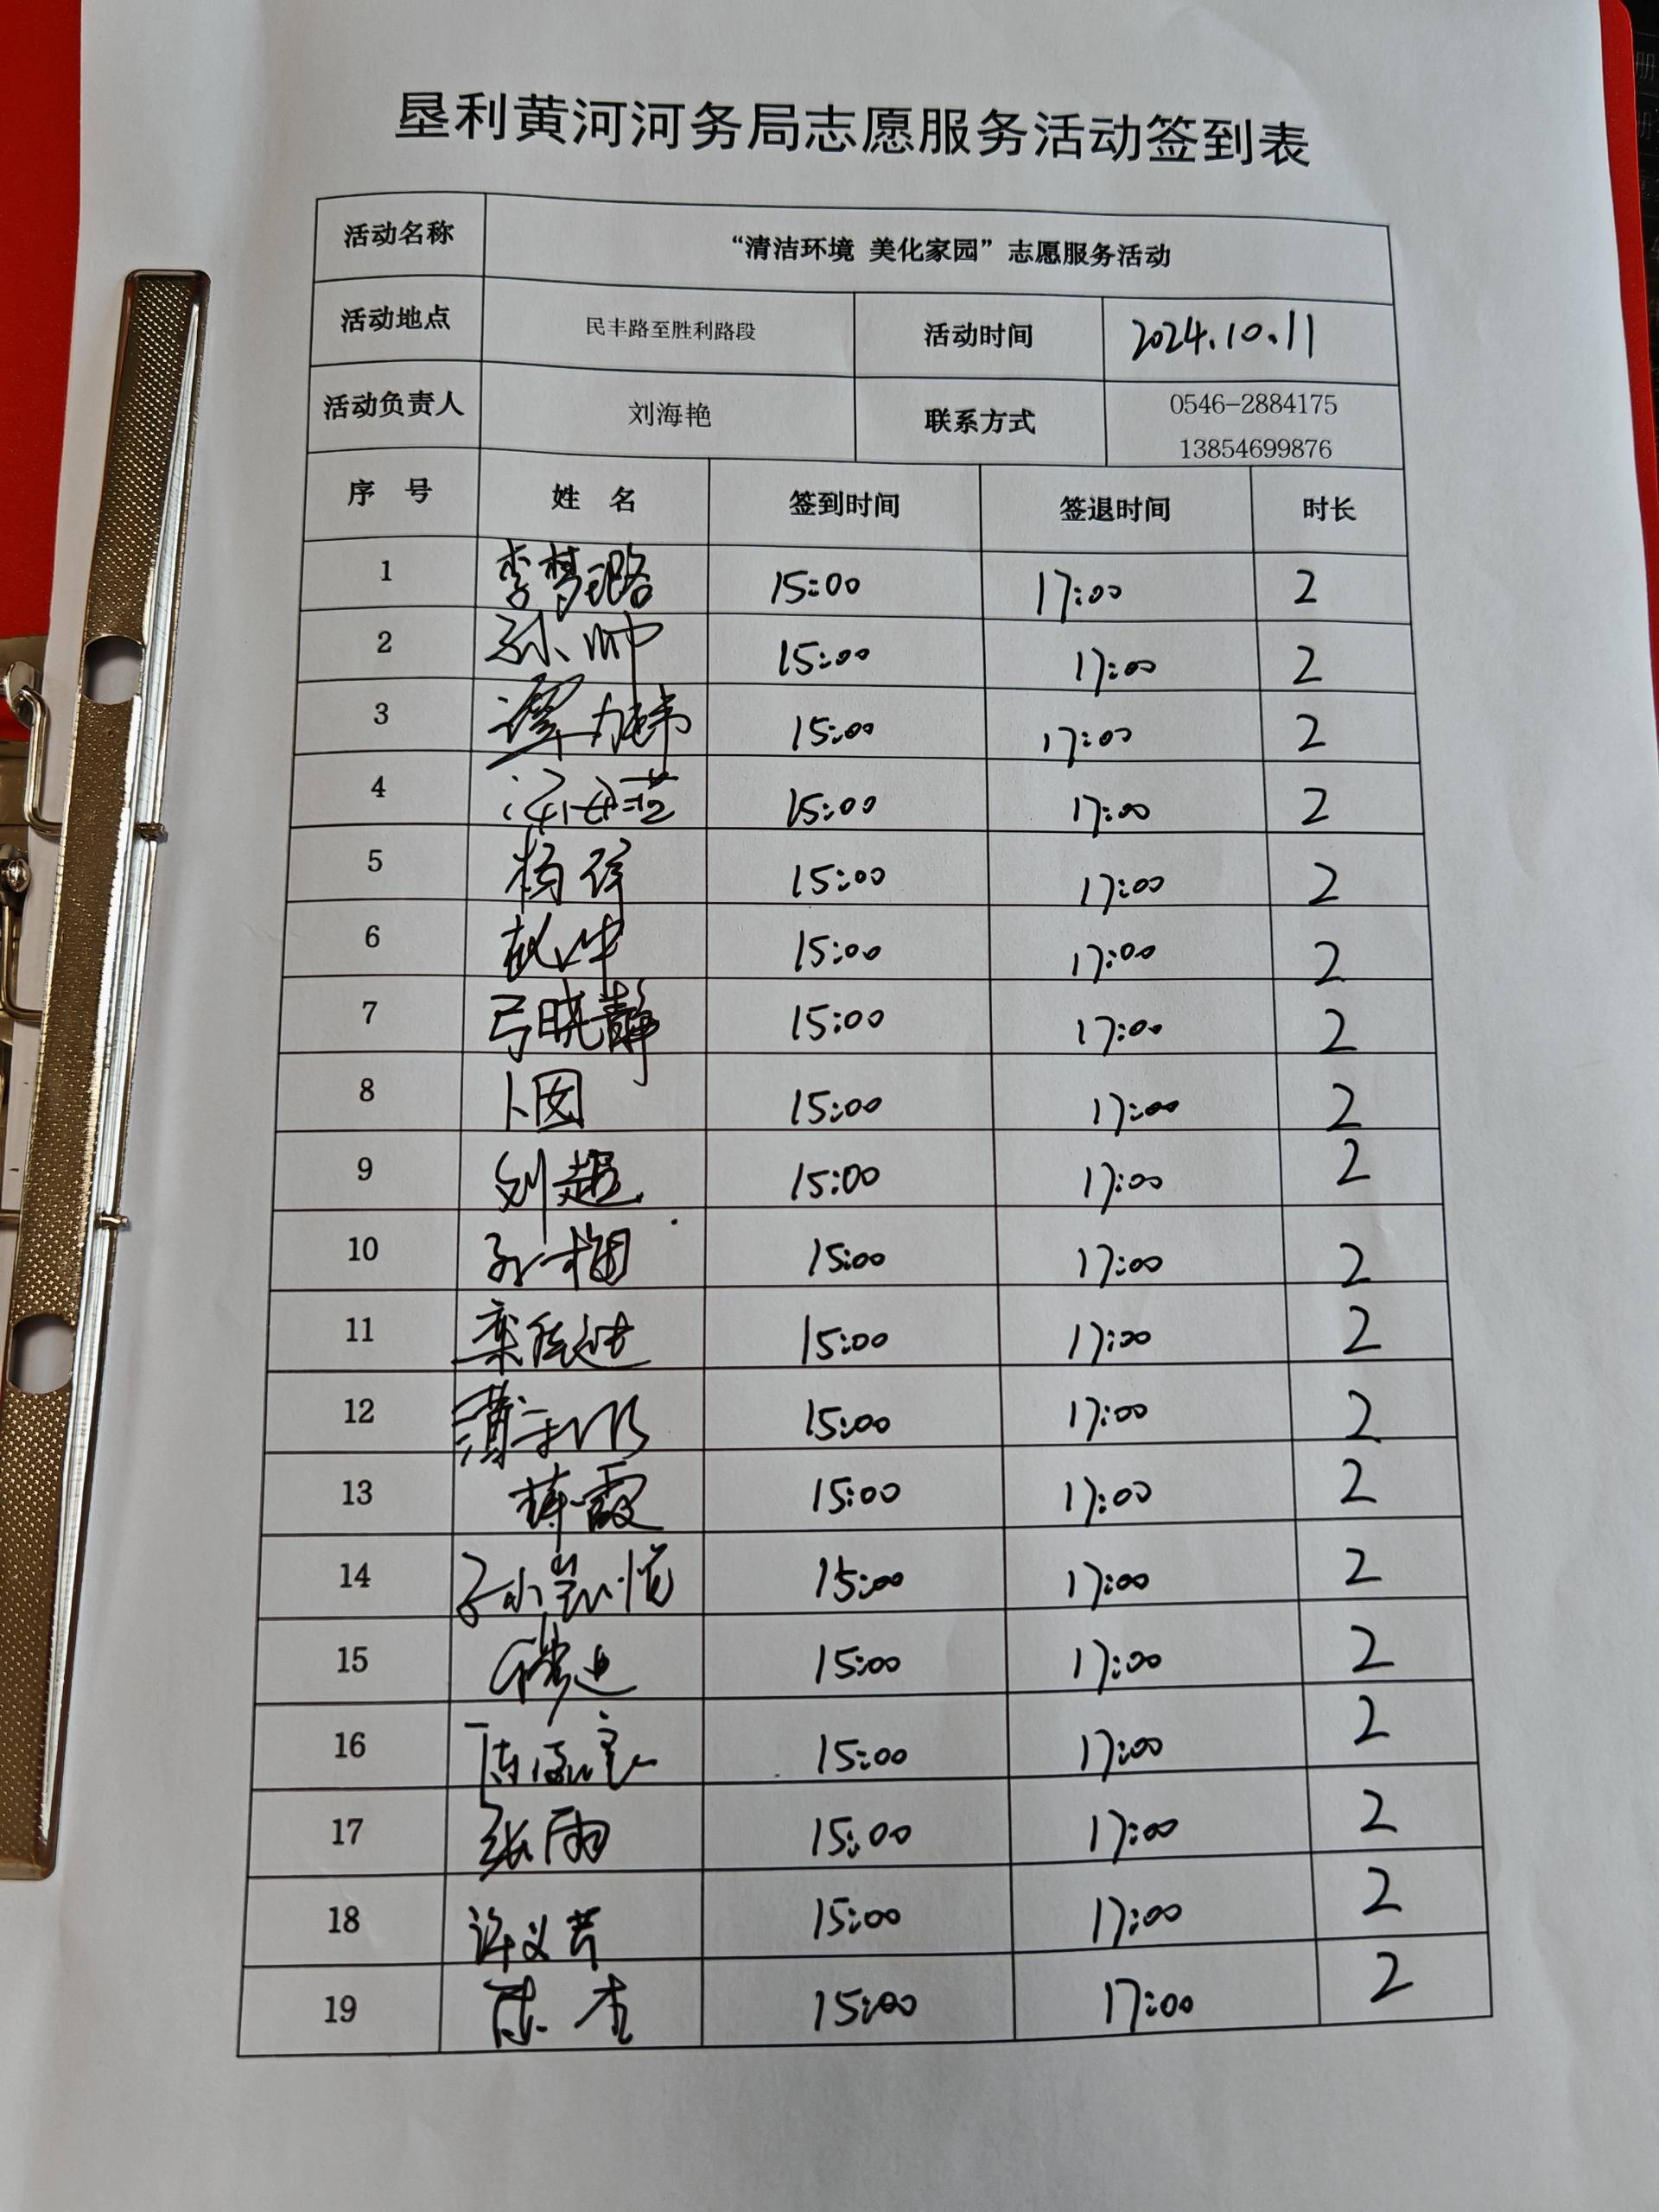 垦利黄河河务局志愿服务活动签到表
活动名称 “清洁环境 美化家园”志愿服务活动
活动地点 民丰路至胜利路段 活动时间 2024.10.11
活动负责人 刘海艳 联系方式 0546-2884175
13854699876
序 号 姓 名 签到时间 签退时间 时长
1 李梦璐 15:00 17:00 2
2 孙帅 15:00 17:00 2
3 15:00 17:00 2
4 15:00 17:00 2
5 15:00 17:00 2
6 赵冲 15:00 17:00 2
7 弓晓静 15:00 17:00 2
8 卜囡 15:00 17:00 2
9 刘超 15:00 17:00 2
10 15:00 17:00 2
11 15:00 17:00 2
12 15:00 17:00 2
13 薛霞 15:00 17:00 2
14 15:00 17:00 2
15 15:00 17:00 2
16 15:00 17:00 2
17 张雨 15:00 17:00 2
18 许义芹 15:00 17:00 2
19 陈杰 15:00 17:00 2